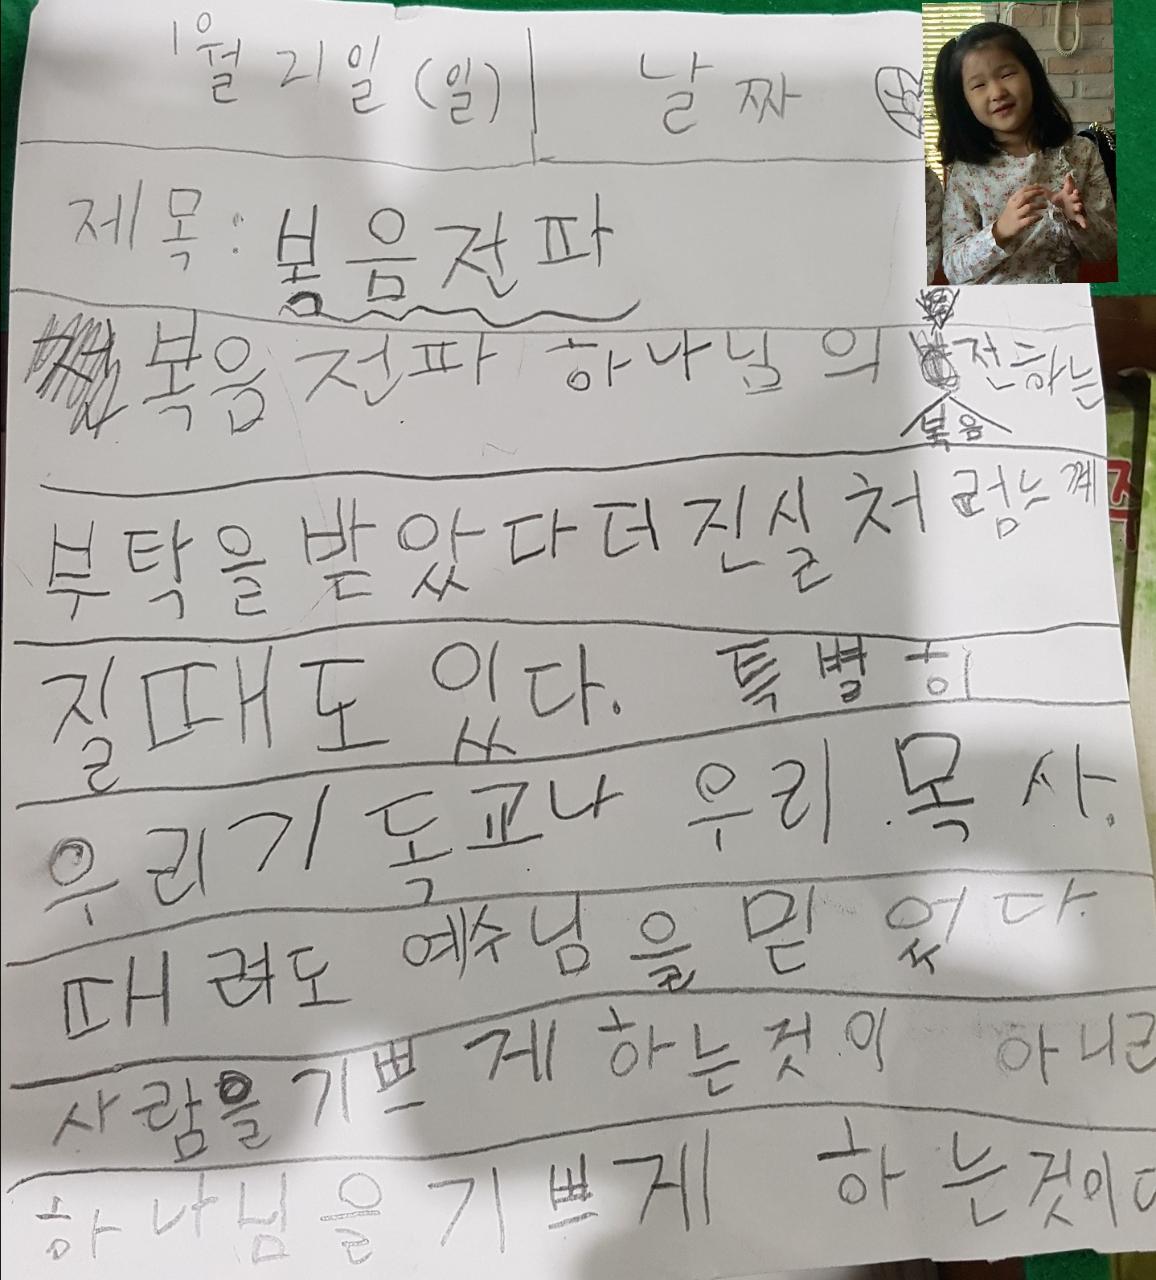 1월 21일 (일) 날짜
제목: 복음전파
복음 전파 하나님의 복음 전하는
부탁을 받았다 더 진실 처럼 느계
질때도 있다. 특별히
우리 기독교나 우리 목사.
때려도 예수님을 믿었다.
사람을 기쁘게 하는것이 아니라
하나님을 기쁘게 하는것이다